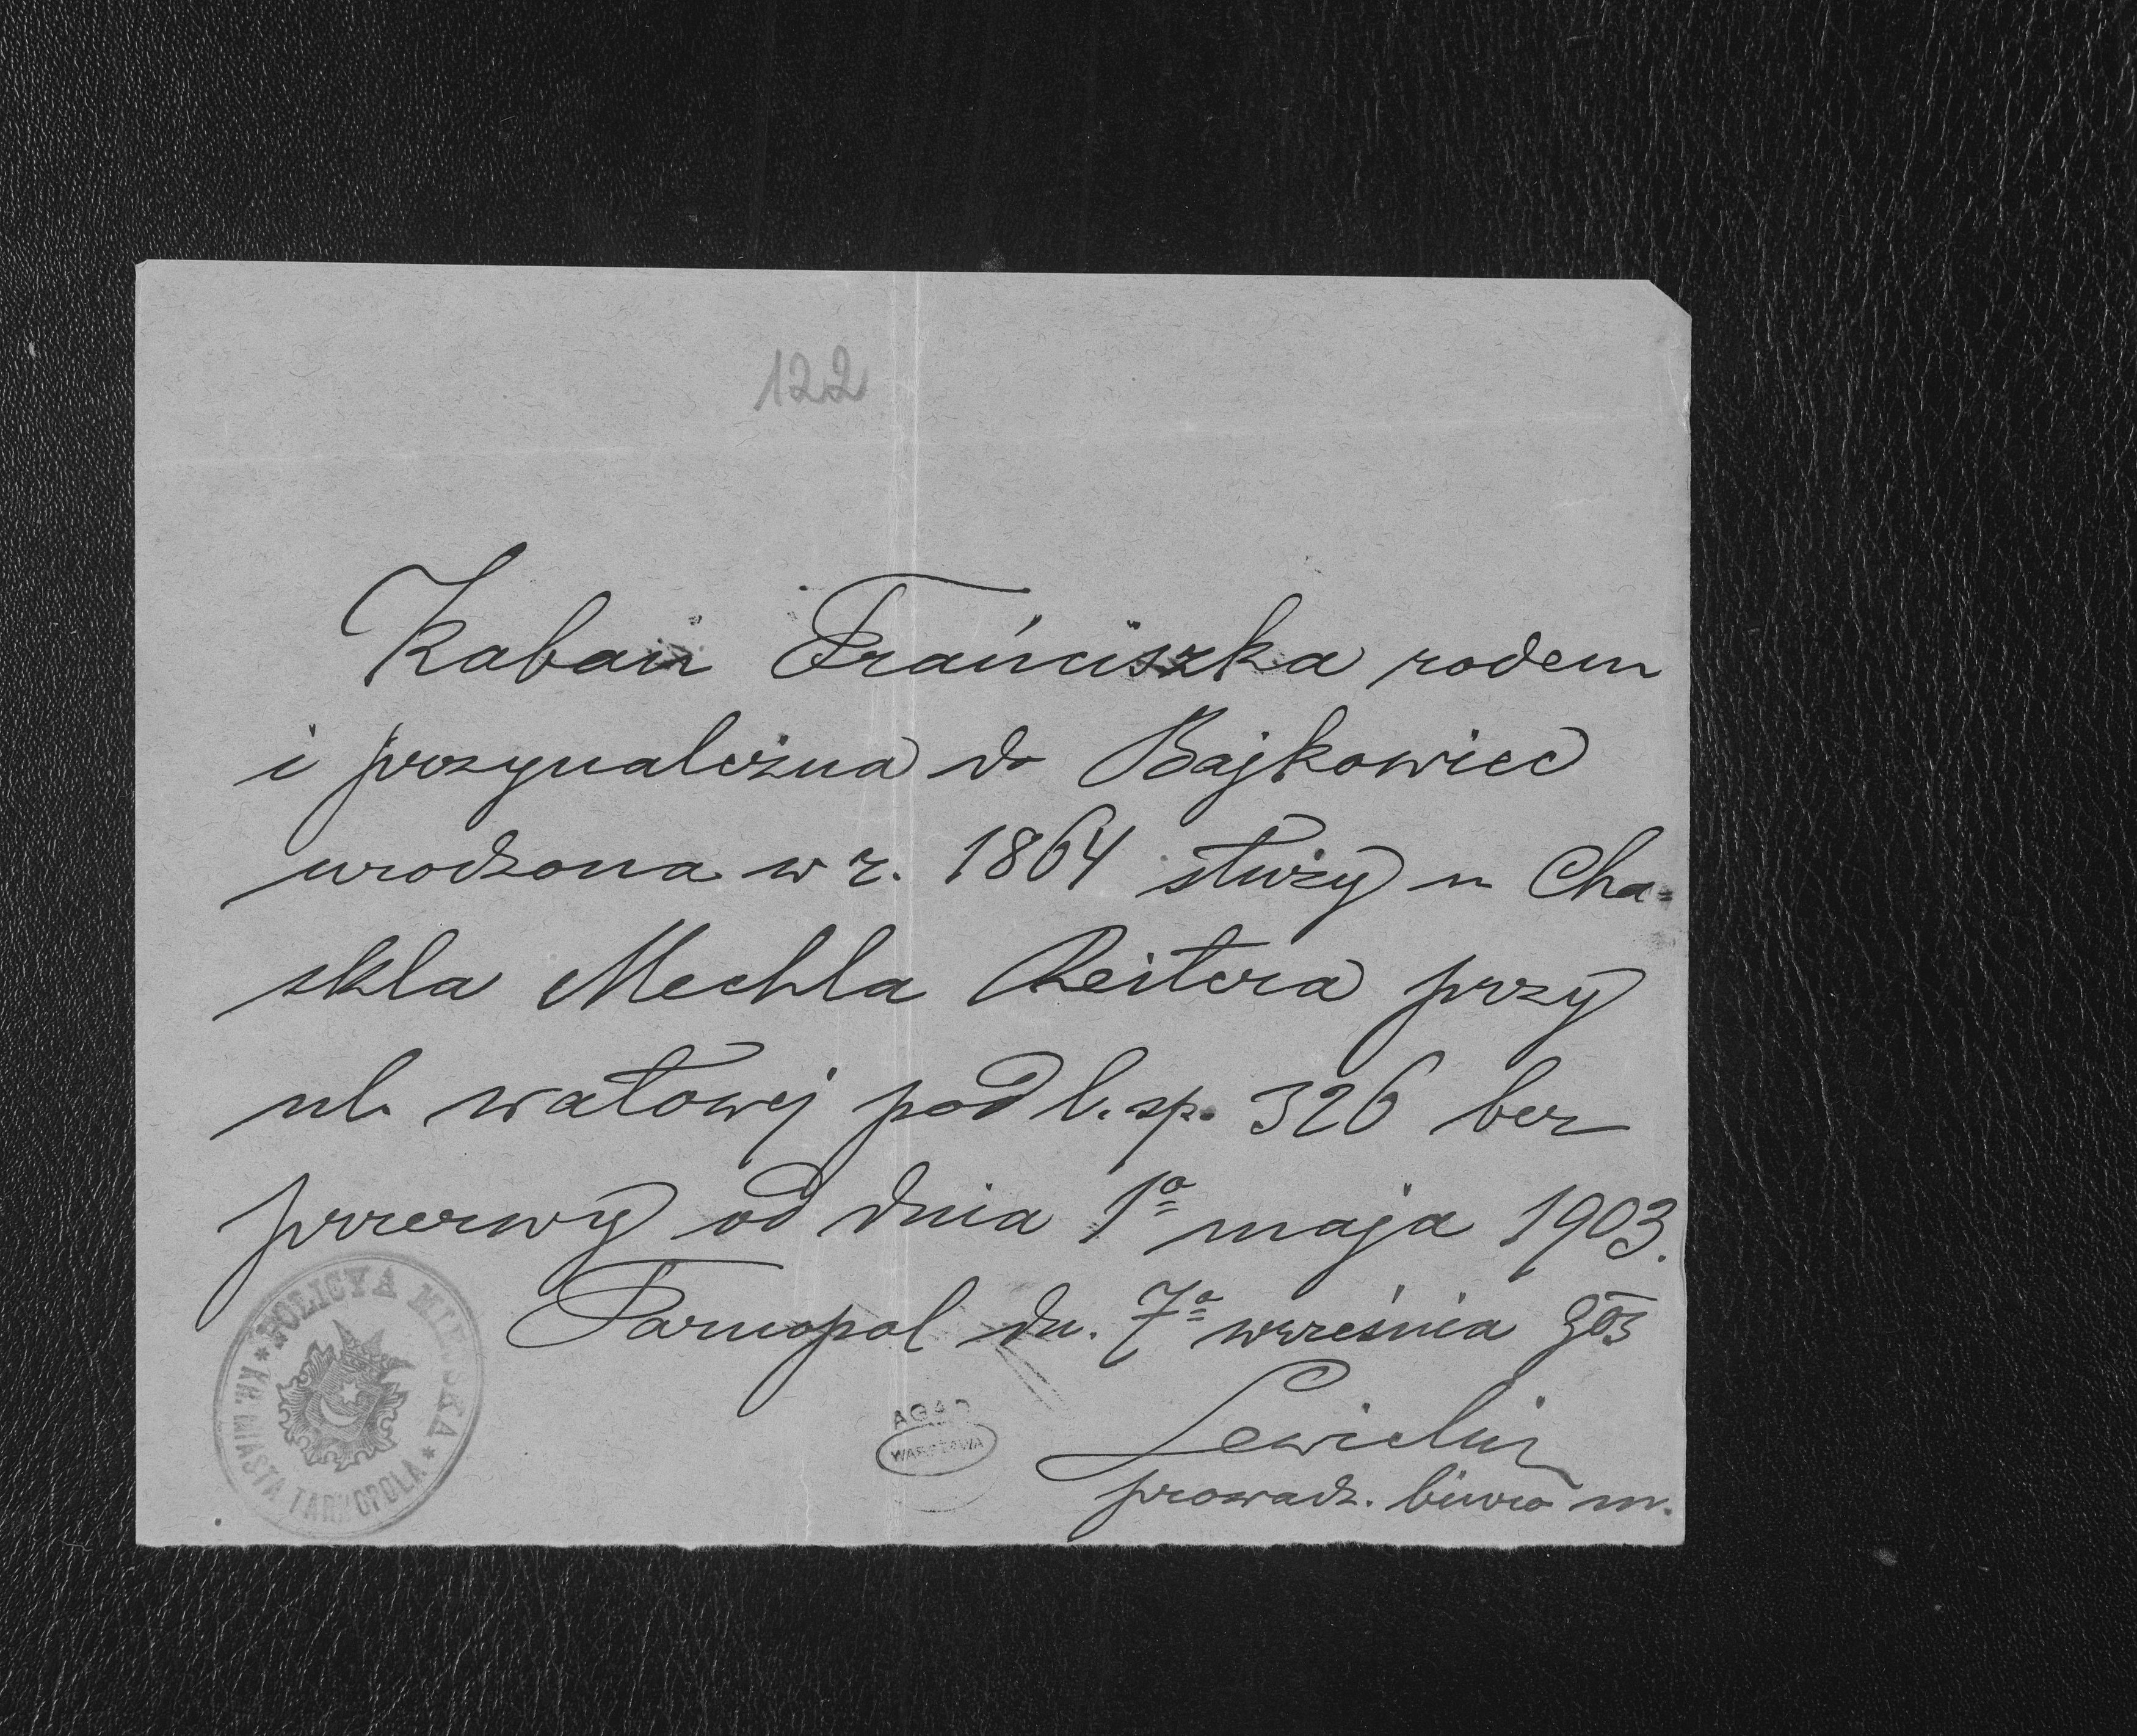 122
Kaban Frańciszka rodem
i przynależna do Bajkowiec
urodzona w r. 1864 służy u Cha=
skla Mechla Reitera przy
ul. wałowej pod l. sp. 326 bez
przerwy od dnia 1º maja 1903.
Tarnopol dn. 7º września 903
prowadz. biuro m.
* POLICYA MIEJSKA *
KR. MIASTA TARNOPOLA
AGAD
WARSZAWA